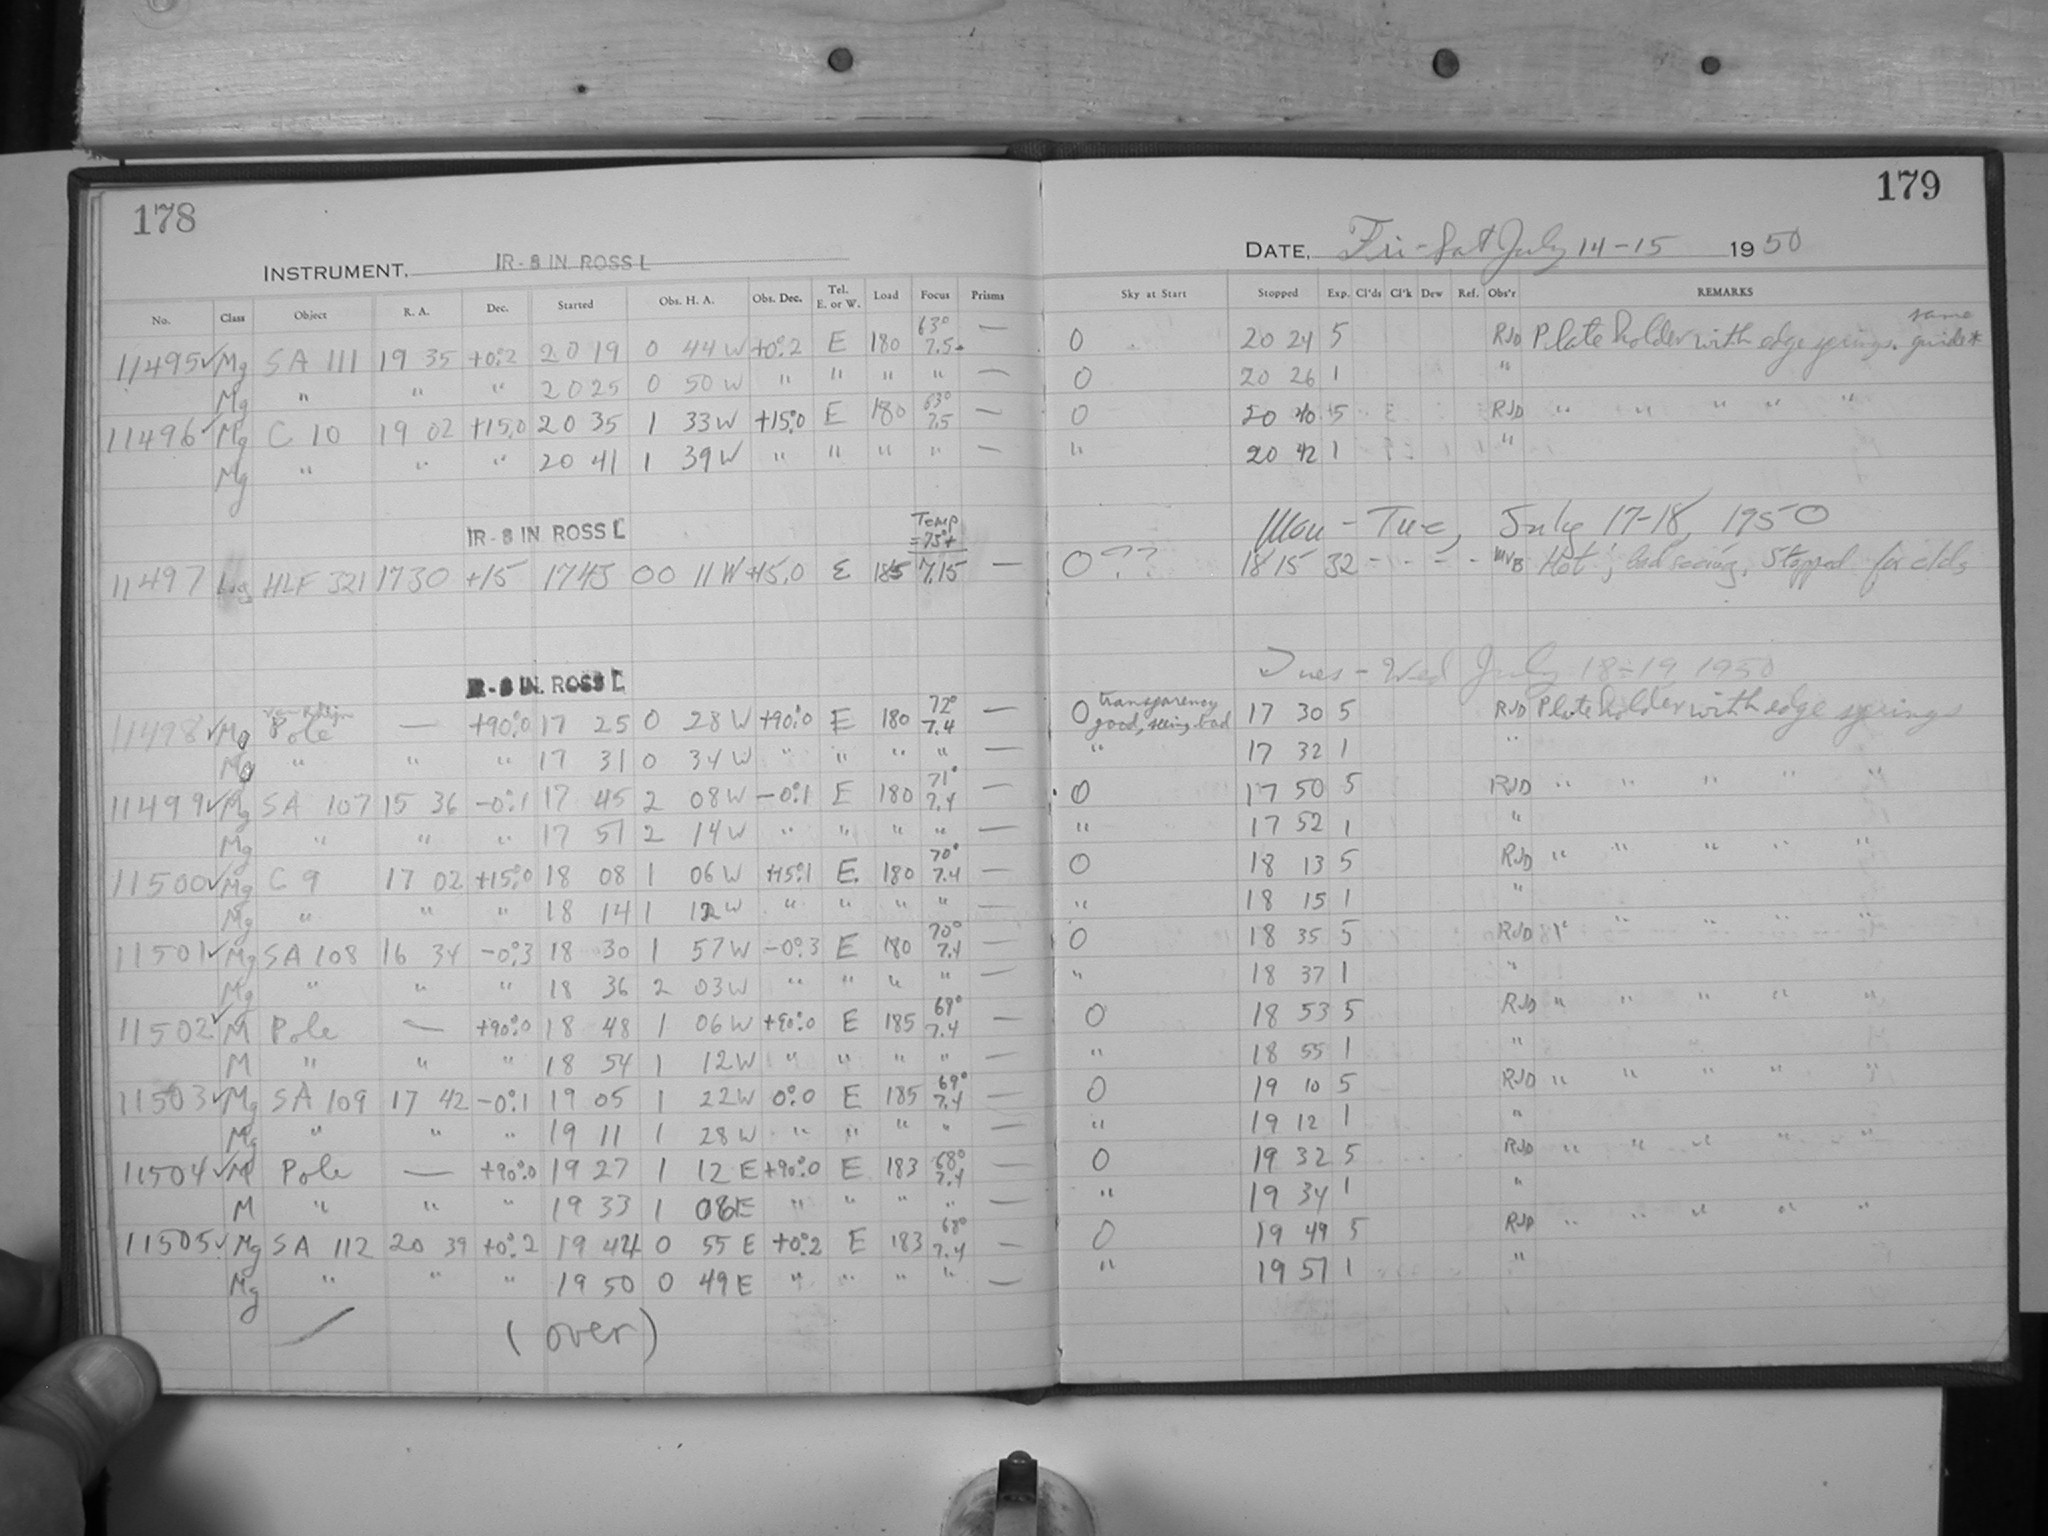 178
179
INSTRUMENT. IR-8 IN ROSS L
DATE, Fri-Sat July 14-15 1950
No. Class Object R. A. Dec. Started Obs. H. A. Obs. Dec. Tel. E. or W. Load Focus Prisms Sky at Start Stopped Exp. Cl'ds Cl'k Dew Ref. Obs'r REMARKS
11495 ✓ Mg SA 111 19 35 +0°.2 20 19 0 44 W +0°.2 E 180 63° 7.5 — 0 20 24 5 RJD Plate holder with edge springs. same guide*
Mg " " " 20 25 0 50 W " " " " — 0 20 26 1 "
11496 ✓ Mg C 10 19 02 +15.0 20 35 1 33 W +15°.0 E 180 63° 7.5 — 0 20 40 5 RJD " " " " "
Mg " " " 20 41 1 39 W " " " " — " 20 42 1 "
IR-8 IN ROSS L Temp = 75°+ Mon - Tue, July 17-18, 1950
11497 HLF 321 17 30 +15 17 43 00 11 W +15.0 E 185 7.15 — 0 ?? 18 15 32 - - - - MVB Hot!, bad seeing. Stopped for clds
IR-8 IN ROSS L Tues - Wed July 18-19 1950
11498 ✓ Mg Pole — +90°.0 17 25 0 28 W +90°.0 E 180 72° 7.4 — 0 transparency good, seeing bad 17 30 5 RJD Plate holder with edge springs
Mg " " " 17 31 0 34 W " " " " — " 17 32 1 "
11499 ✓ Mg SA 107 15 36 -0°.1 17 45 2 08 W -0°.1 E 180 71° 7.4 — 0 17 50 5 RJD " " " " "
Mg " " " 17 51 2 14 W " " " " — " 17 52 1 "
11500 ✓ Mg C 9 17 02 +15°.0 18 08 1 06 W +15°.1 E 180 70° 7.4 — 0 18 13 5 RJD " " " " "
Mg " " " 18 14 1 12 W " " " " — " 18 15 1 "
11501 ✓ Mg SA 108 16 34 -0°.3 18 30 1 57 W -0°.3 E 180 70° 7.4 — 0 18 35 5 RJD " " " " "
Mg " " " 18 36 2 03 W " " " " — " 18 37 1 "
11502 ✓ M Pole — +90°.0 18 48 1 06 W +90°.0 E 185 69° 7.4 — 0 18 53 5 RJD " " " " "
M " " " 18 54 1 12 W " " " " — " 18 55 1 "
11503 ✓ Mg SA 109 17 42 -0°.1 19 05 1 22 W 0°.0 E 185 69° 7.4 — 0 19 10 5 RJD " " " " "
Mg " " " 19 11 1 28 W " " " " — " 19 12 1 "
11504 ✓ M Pole — +90°.0 19 27 1 12 E +90°.0 E 183 68° 7.4 — 0 19 32 5 RJD " " " " "
M " " " 19 33 1 06 E " " " " — " 19 34 1 "
11505 ✓ Mg SA 112 20 39 +0°.2 19 44 0 55 E +0°.2 E 183 68° 7.4 — 0 19 49 5 RJD " " " " "
Mg " " " 19 50 0 49 E " " " " — " 19 51 1 "
(over)